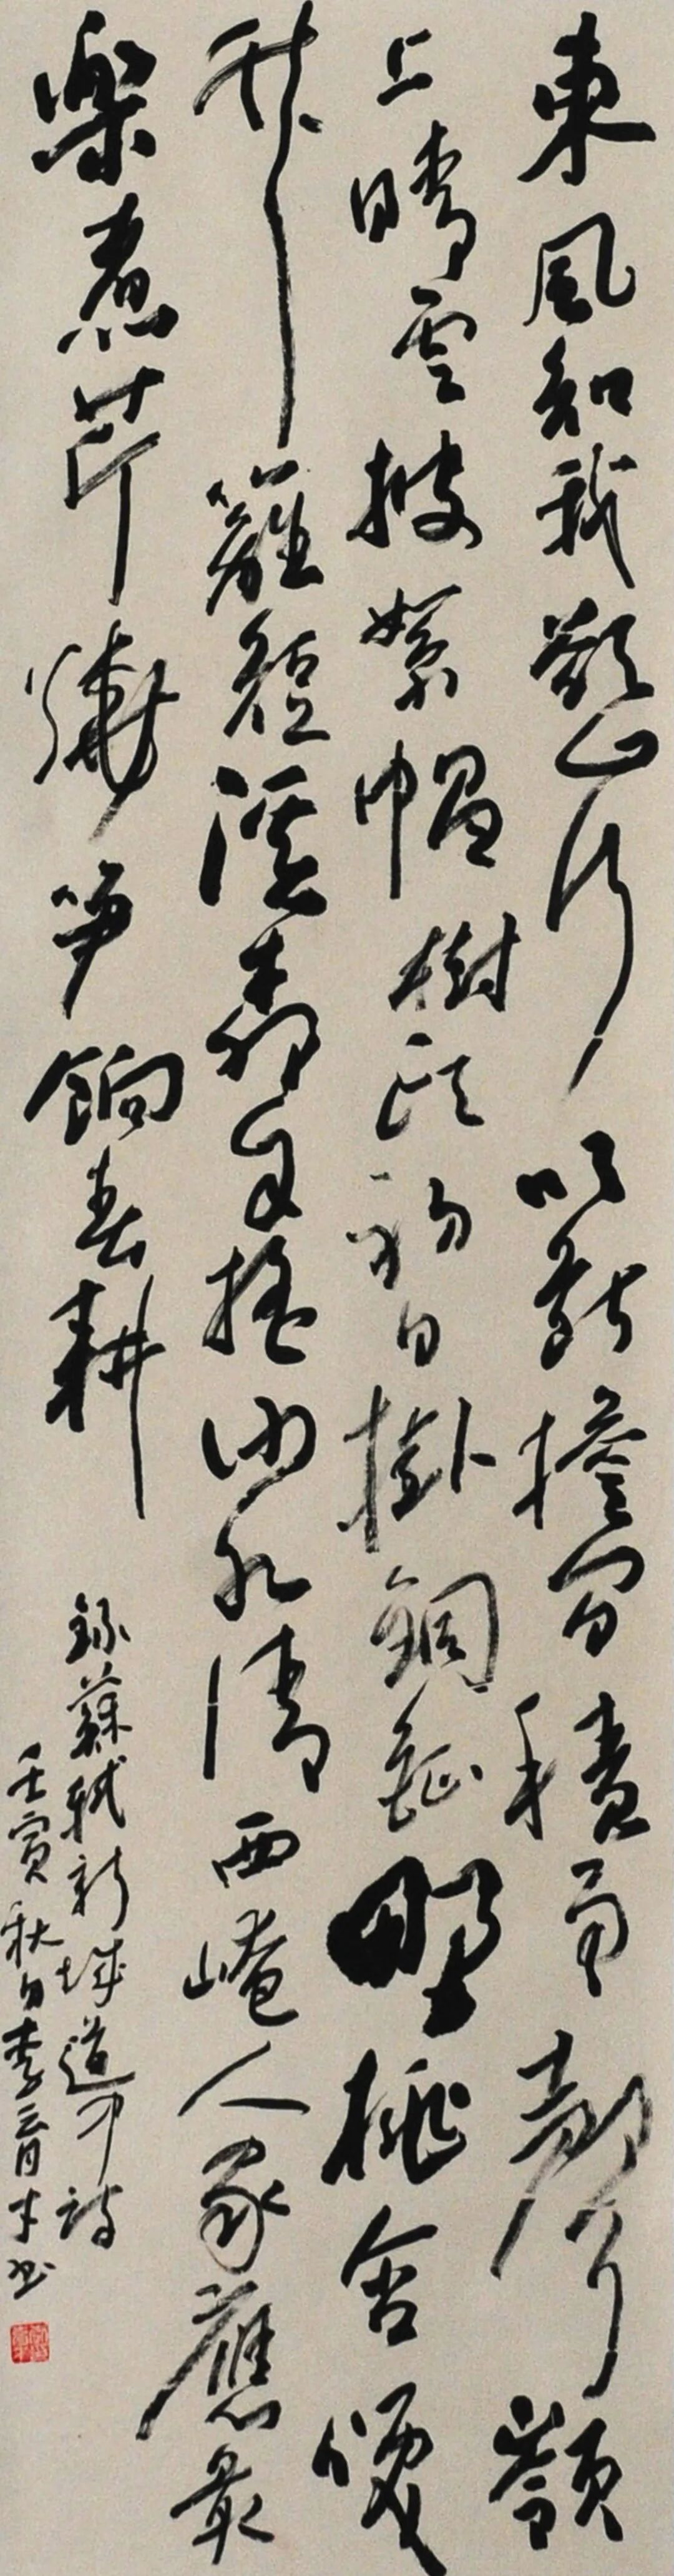 東風知我欲山行吹斷簷間積雨聲嶺
上晴雲披絮帽樹頭初日掛銅鉦野桃含笑
竹籬短溪柳自搖沙水清西崦人家應最
樂煮芹燒筍餉春耕
錄蘇軾新城道中詩
壬寅秋月李育才书